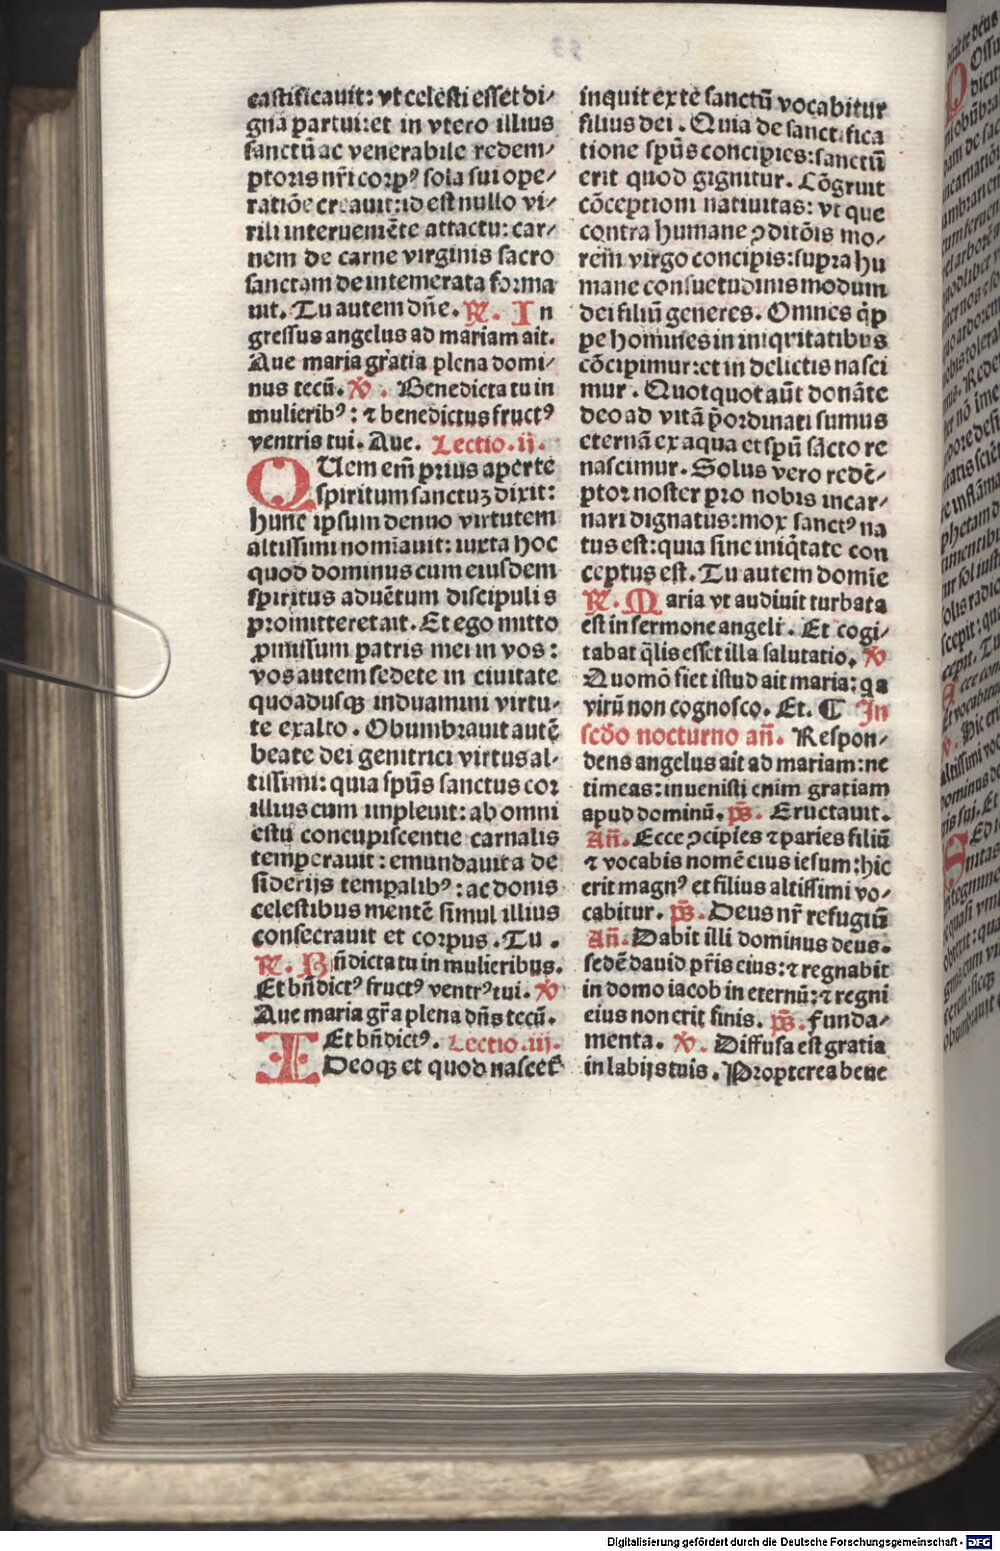 castificauit: vt celesti esset di⸗
gnā partui: et in vtero illius
sanctū ac venerabile redem⸗
ptoris nr̄i corpꝰ sola sui ope⸗
ratiōe creauit: id est nullo vi⸗
rili interueniēte attactu: car⸗
nem de carne virginis sacro
sanctam de intemerata forma
uit. Tu autem dn̄e. R̄. In
gressus angelus ad mariam ait.
Aue maria gr̄atia plena domi⸗
nus tecū. V̄. Benedicta tu in
mulieribꝰ: ⁊ benedictus fructꝰ
ventris tui. Aue. Lectio.ij.
QUem em̄ prius aperte
spiritum sanctuꝫ dixit:
hunc ipsum denuo virtutem
altissimi nomīauit: iuxta hoc
quod dominus cum eiusdem
spiritus aduētum discipulis
promitteret ait. Et ego mitto
ꝓmissum patris mei in vos:
vos autem sedete in ciuitate
quoadusqꝫ induamini virtu⸗
te exalto. Obumbrauit autē
beate dei genitrici virtus al⸗
tissimi: quia spūs sanctus cor
illius cum impleuit: ab omni
estu concupiscentie carnalis
temperauit: emundauit a de
siderijs temꝑalibꝰ: ac donis
celestibus mentē simul illius
consecrauit et corpus. Tu.
R̄. Bn̄dicta tu in mulieribus.
Et bn̄dictꝰ fructꝰ ventrꝰ tui. V̄
Aue maria gr̄a plena dn̄s tecū.
Et bn̄dictꝰ. Lectio.iij.
IDeoqꝫ et quod nascet᷑
inquit ex te sanctū vocabitur
filius dei. Quia de sanctifica
tione spūs concipies: sanctū
erit quod gignitur. Cōgruit
cōceptioni natiuitas: vt que
contra humane ꝯditōis mo⸗
rem virgo concipis: supra hu
mane consuetudinis modum
dei filiū generes. Omnes qīp
pe homines in iniqͥtatibus
cōcipimur: et in delictis nasci
mur. Quotquot aūt donāte
deo ad vitā p̄ordinati sumus
eternā ex aqua et spū sācto re
nascimur. Solus vero redē⸗
ptor noster pro nobis incar⸗
nari dignatus: mox sanctꝰ na
tus est: quia sine iniqͥtate con
ceptus est. Tu autem domīe
R̄. Maria vt audiuit turbata
est in sermone angeli. Et cogi⸗
tabat q̄lis esset illa salutatio. V̄
Quomō fiet istud ait maria: qa
virū non cognosco. Et. ¶ In
scd̄o nocturno an̄. Respon⸗
dens angelus ait ad mariam: ne
timeas: inuenisti enim gratiam
apud dominū. ps̄. Eructauit.
An̄. Ecce ꝯcipies ⁊ paries filiū
⁊ vocabis nomē eius iesum: hic
erit magnꝰ et filius altissimi vo⸗
cabitur. ps̄. Deus nr̄ refugiū
An̄. Dabit illi dominus deus.
sedē dauid pr̄is eius: ⁊ regnabit
in domo iacob in eternū: ⁊ regni
eius non erit finis. ps̄. Funda⸗
menta. V̄. Diffusa est gratia
in labijs tuis. Propterea bene
Digitalisierung gefördert durch die Deutsche Forschungsgemeinschaft - DFG